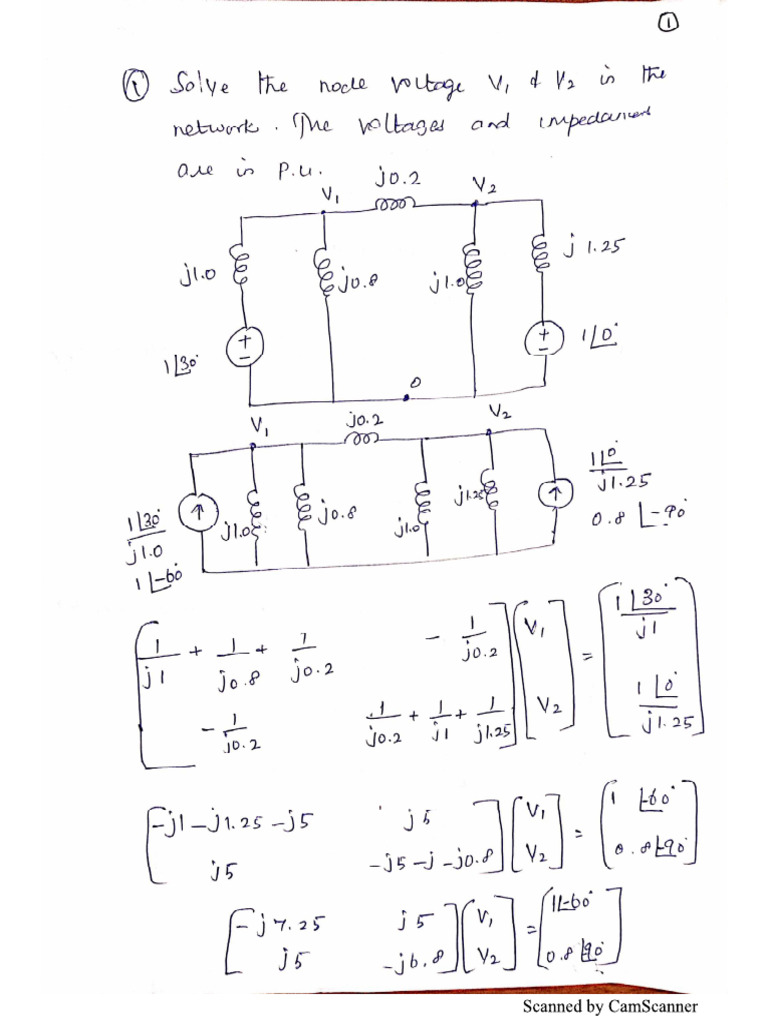 1
① Solve the node voltage V₁ & V₂ in the
network. The voltages and impedances
are in P.U.
j0.2
V₁ V₂
j1.0 j0.8 j1.0 j 1.25
+ − 1∠30° + − 1∠0°
0
V₁ j0.2 V₂
1∠30°/j1.0 j1.0 j0.8 j1.0 j1.25 1∠0°/j1.25
1∠-60 0.8∠-90
[1/j1 + 1/j0.8 + 1/j0.2 -1/j0.2] [V₁] = [1∠30°/j1]
[-1/j0.2 1/j0.2 + 1/j1 + 1/j1.25] [V₂] [1∠0°/j1.25]
[-j1-j1.25-j5 j5] [V₁] = [1 ∠-60°]
[j5 -j5-j-j0.8] [V₂] [0.8∠-90°]
[-j7.25 j5] [V₁] = [1∠-60°]
[j5 -j6.8] [V₂] [0.8∠90°]
Scanned by CamScanner